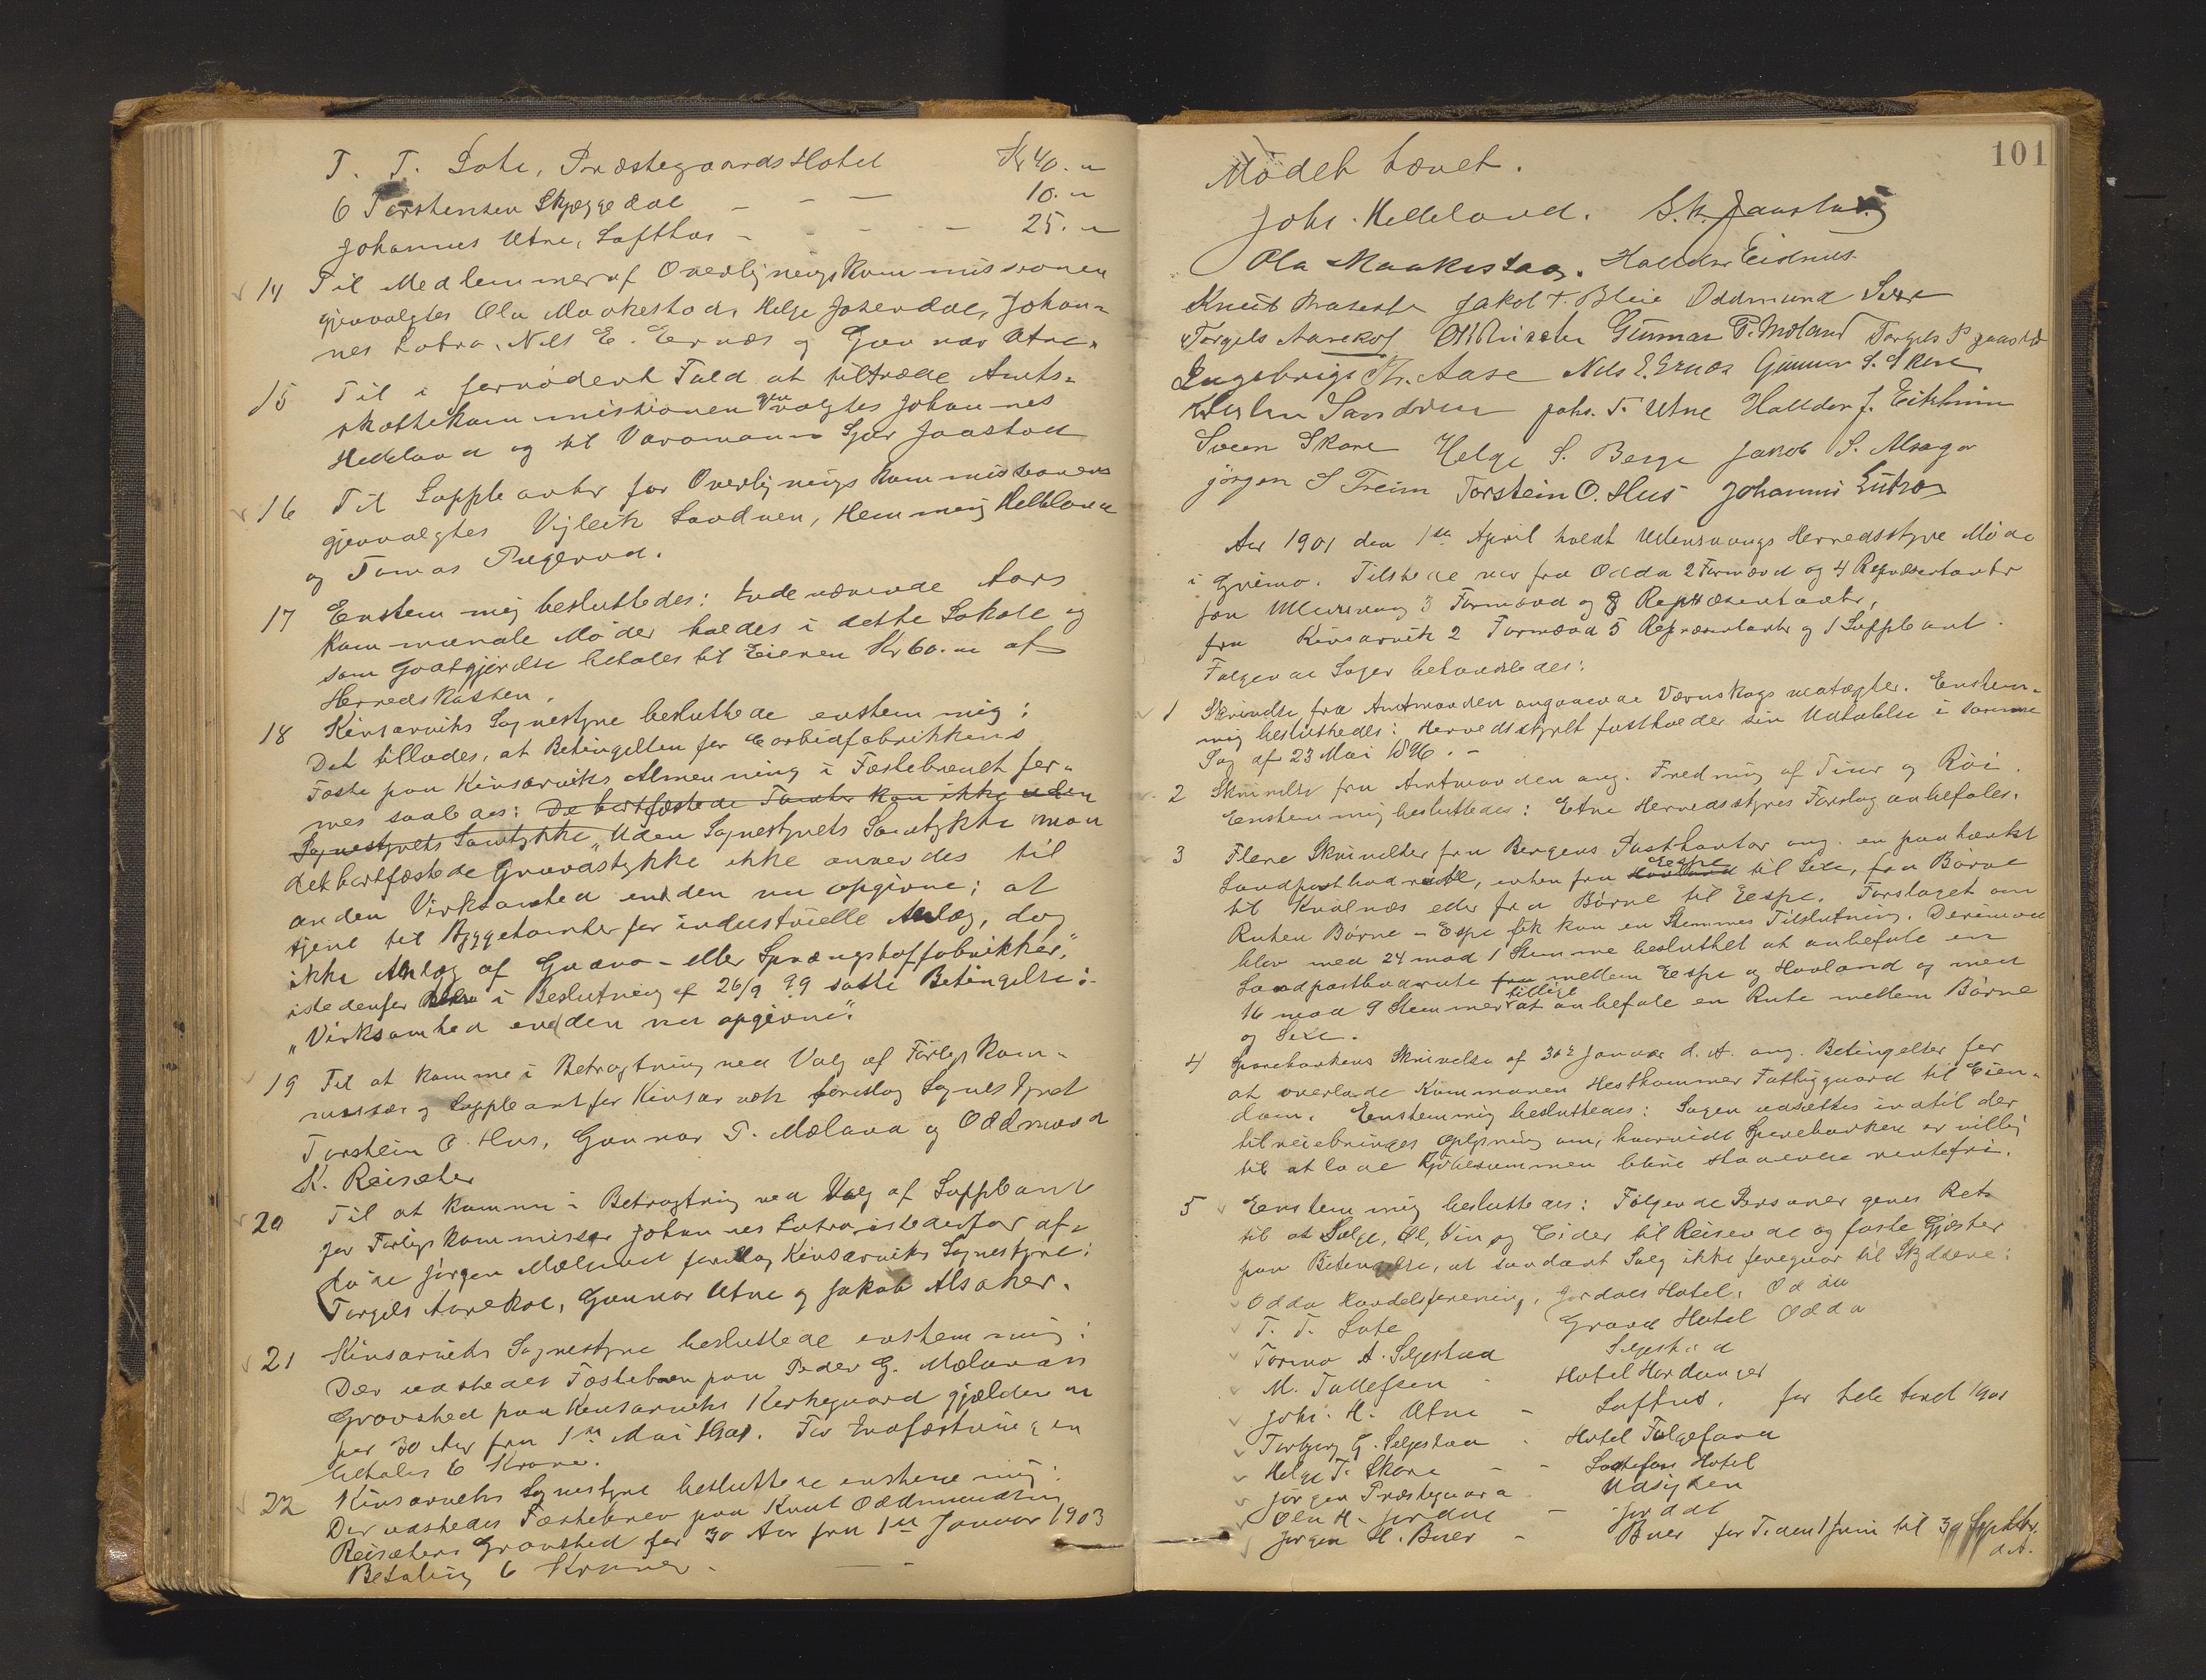 T. T. Lote, Præstegaards Hotel Kr 40. "
O Torstensen Skjæggedal - - - 10. "
Johannes Utne, Lofthus - - - - 25. "
14 Til Medlemmer af Overligningskommissionen
gjenvalgtes Ola Maakestad, Helge Jøsendal, Johan-
nes Lutro, Nils E. Ernæs og Gunnar Utne.
15 Til i fornødent Fald at tiltræde Amts-
skattekommissionen gjenvalgtes Johannes
Helleland og til Varamann Sjur Jaastad
16 Til Suppleanter for Overligningskommissionen
gjenvalgtes Vigleik Sandven, Hemming Helleland
og Tomas
17 Enstemmig besluttedes: Indeværende Aars
kommunale Møder holdes i dette Lokale og
som Godtgjørelse betales til Eieren Kr 60. " af
Herredskassen.
18 Kinsarviks Sognestyre besluttede enstemmig:
Det tillades, at Betingelsen for Carbidfabrikkens
Fæste paa Kinsarviks Almenning i Fæstebrevet for-
mes saaledes: De bortfæstede Tomter kan ikke uden
Sognestyrets Samtykke "Uden Sognestyrets Samtykke maa
det bortfæstede Grundstykke ikke anvendes til
anden Virksomhed end den nu opgivne; at
tjene til Byggetomter for industrielle Anlæg, dog
ikke Anlæg af Guano- eller Sprængstoffabrikker,"
istedenfor i Beslutning af 26/9 99 satte Betingelse:
"Virksomhed end den nu opgivne".
19 Til at komme i Betragtning ved Valg af Forligskom-
missær og Suppleant for Kinsarvik foreslog Sognestyret
Torstein O. Hus, Gunnar T. Mæland og Oddmund
K. Reisæter
20 Til at komme i Betragtning ved Valg af Suppleant
for Forligskommissær Johannes Lutro istedenfor af-
døde Jørgen Mæland foreslog Kinsarviks Sognestyre:
Torgils Aarekol, Gunnar Utne og Jakob Alsaker.
21 Kinsarviks Sognestyre besluttede enstemmig:
Der udstedes Fæstebrev paa Peder G. Mælands
Gravsted paa Kinsarviks Kirkegaard gjældende
for 30 Aar fra 1ste Mai 1901. For Indfæstning en
betales 6 Kroner.
22 Kinsarviks Sognestyre besluttede enstemmig:
Der udstedes Fæstebrev paa Knut Oddmundsen
Reisæters Gravsted for 30 Aar fra 1ste Januar 1903
Betaling 6 Kroner.
101
Mødet hævet.
Johs. Helleland. S. K. Jaastad
Ola Maakestad. Halldor Eidnes
Knut Jakob T. Bleie Oddmund Sexe
Torgils Aarekol Gunnar T. Mæland Torgils P Jaastad
Engebrigt Th. Aase Nils E. Ernæs Gunnar S. Skare
Sandven Johs. T. Utne Halldor J. Eitrheim
Sveen Skare Helge S. Berge Jakob S. Alsager
Jørgen S Freim Torstein O. Hus Johannes Lutro
Aar 1901 den 1ste April holdt Ullensvangs Herredsstyre Møde
i Grimo. Tilstede var fra Odda 2 Formænd og 4 Repræsentanter
fra Ullensvang 3 Formænd og 8 Repræsentanter,
fra Kinsarvik 2 Formænd 5 Repræsentanter og 1 Suppleant.
Følgende Sager behandledes:
1 Skrivelse fra Amtmanden angaaende Værnskogsvedtægter. Enstem-
mig besluttedes: Herredsstyret fastholder sin Udtalelse i samme
Sag af 23 Mai 1896. -
2 Skrivelse fra Amtmanden ang. Fredning af Tiur og Røi.
Enstemmig besluttedes: Etne Herredsstyres Forslag anbefales.
3 Flere Skrivelser fra Bergens Postkontor ang. en paatænkt
Landpostbudrute, enten fra Hovland Eespe til Sexe, fra Børve
til Kvalnæs eller fra Børve til Eespe. Forslaget om
Ruten Børve - Espe fik kun en Stemmes Tilslutning. Derimod
blev med 24 mod 1 Stemme besluttet at anbefale en
Landpostbudrute fra mellem Eespe og Hovland og med
16 mod 9 Stemmer tillige at anbefale en Rute mellem Børve
og Sexe.
4 Sparebankens Skrivelse af 30te Januar d. A. ang. Betingelser for
at overlade Kommunen Hesthammer Fattiggaard til Eien-
dom. Enstemmig besluttedes: Sagen udsættes indtil der
tilveiebringes Oplysning om, hvorvidt Sparebanken er villig
til at lade Kjøbesummen blive staaende rentefri.
5 Enstemmig besluttedes: Følgende Personer gives Ret
til at Sælge, Øl, Vin og Cider til Reisende og faste Gjæster
paa Betingelse, at saadant Salg ikke foregaar til Skydsere:
Odda Handelsforening, Jordals Hotel, Odda
T. T. Lote Grand Hotel Odda
Tormo A. Seljestad Seljestad
M. Tollefsen - Hotel Hardanger
Johs. H. Utne - Lofthus, for hele Aaret 1901
Torbjørg G. Seljestad - Hotel Folgefond
Helge T. Skare - - Laatefos Hotel
Jørgen Præstegaard Udsigten
Olav H. Jordal - Jordal
Jørgen H. Buer - Buer for T. den 1 Juni til 30 Septbr.
d. A.